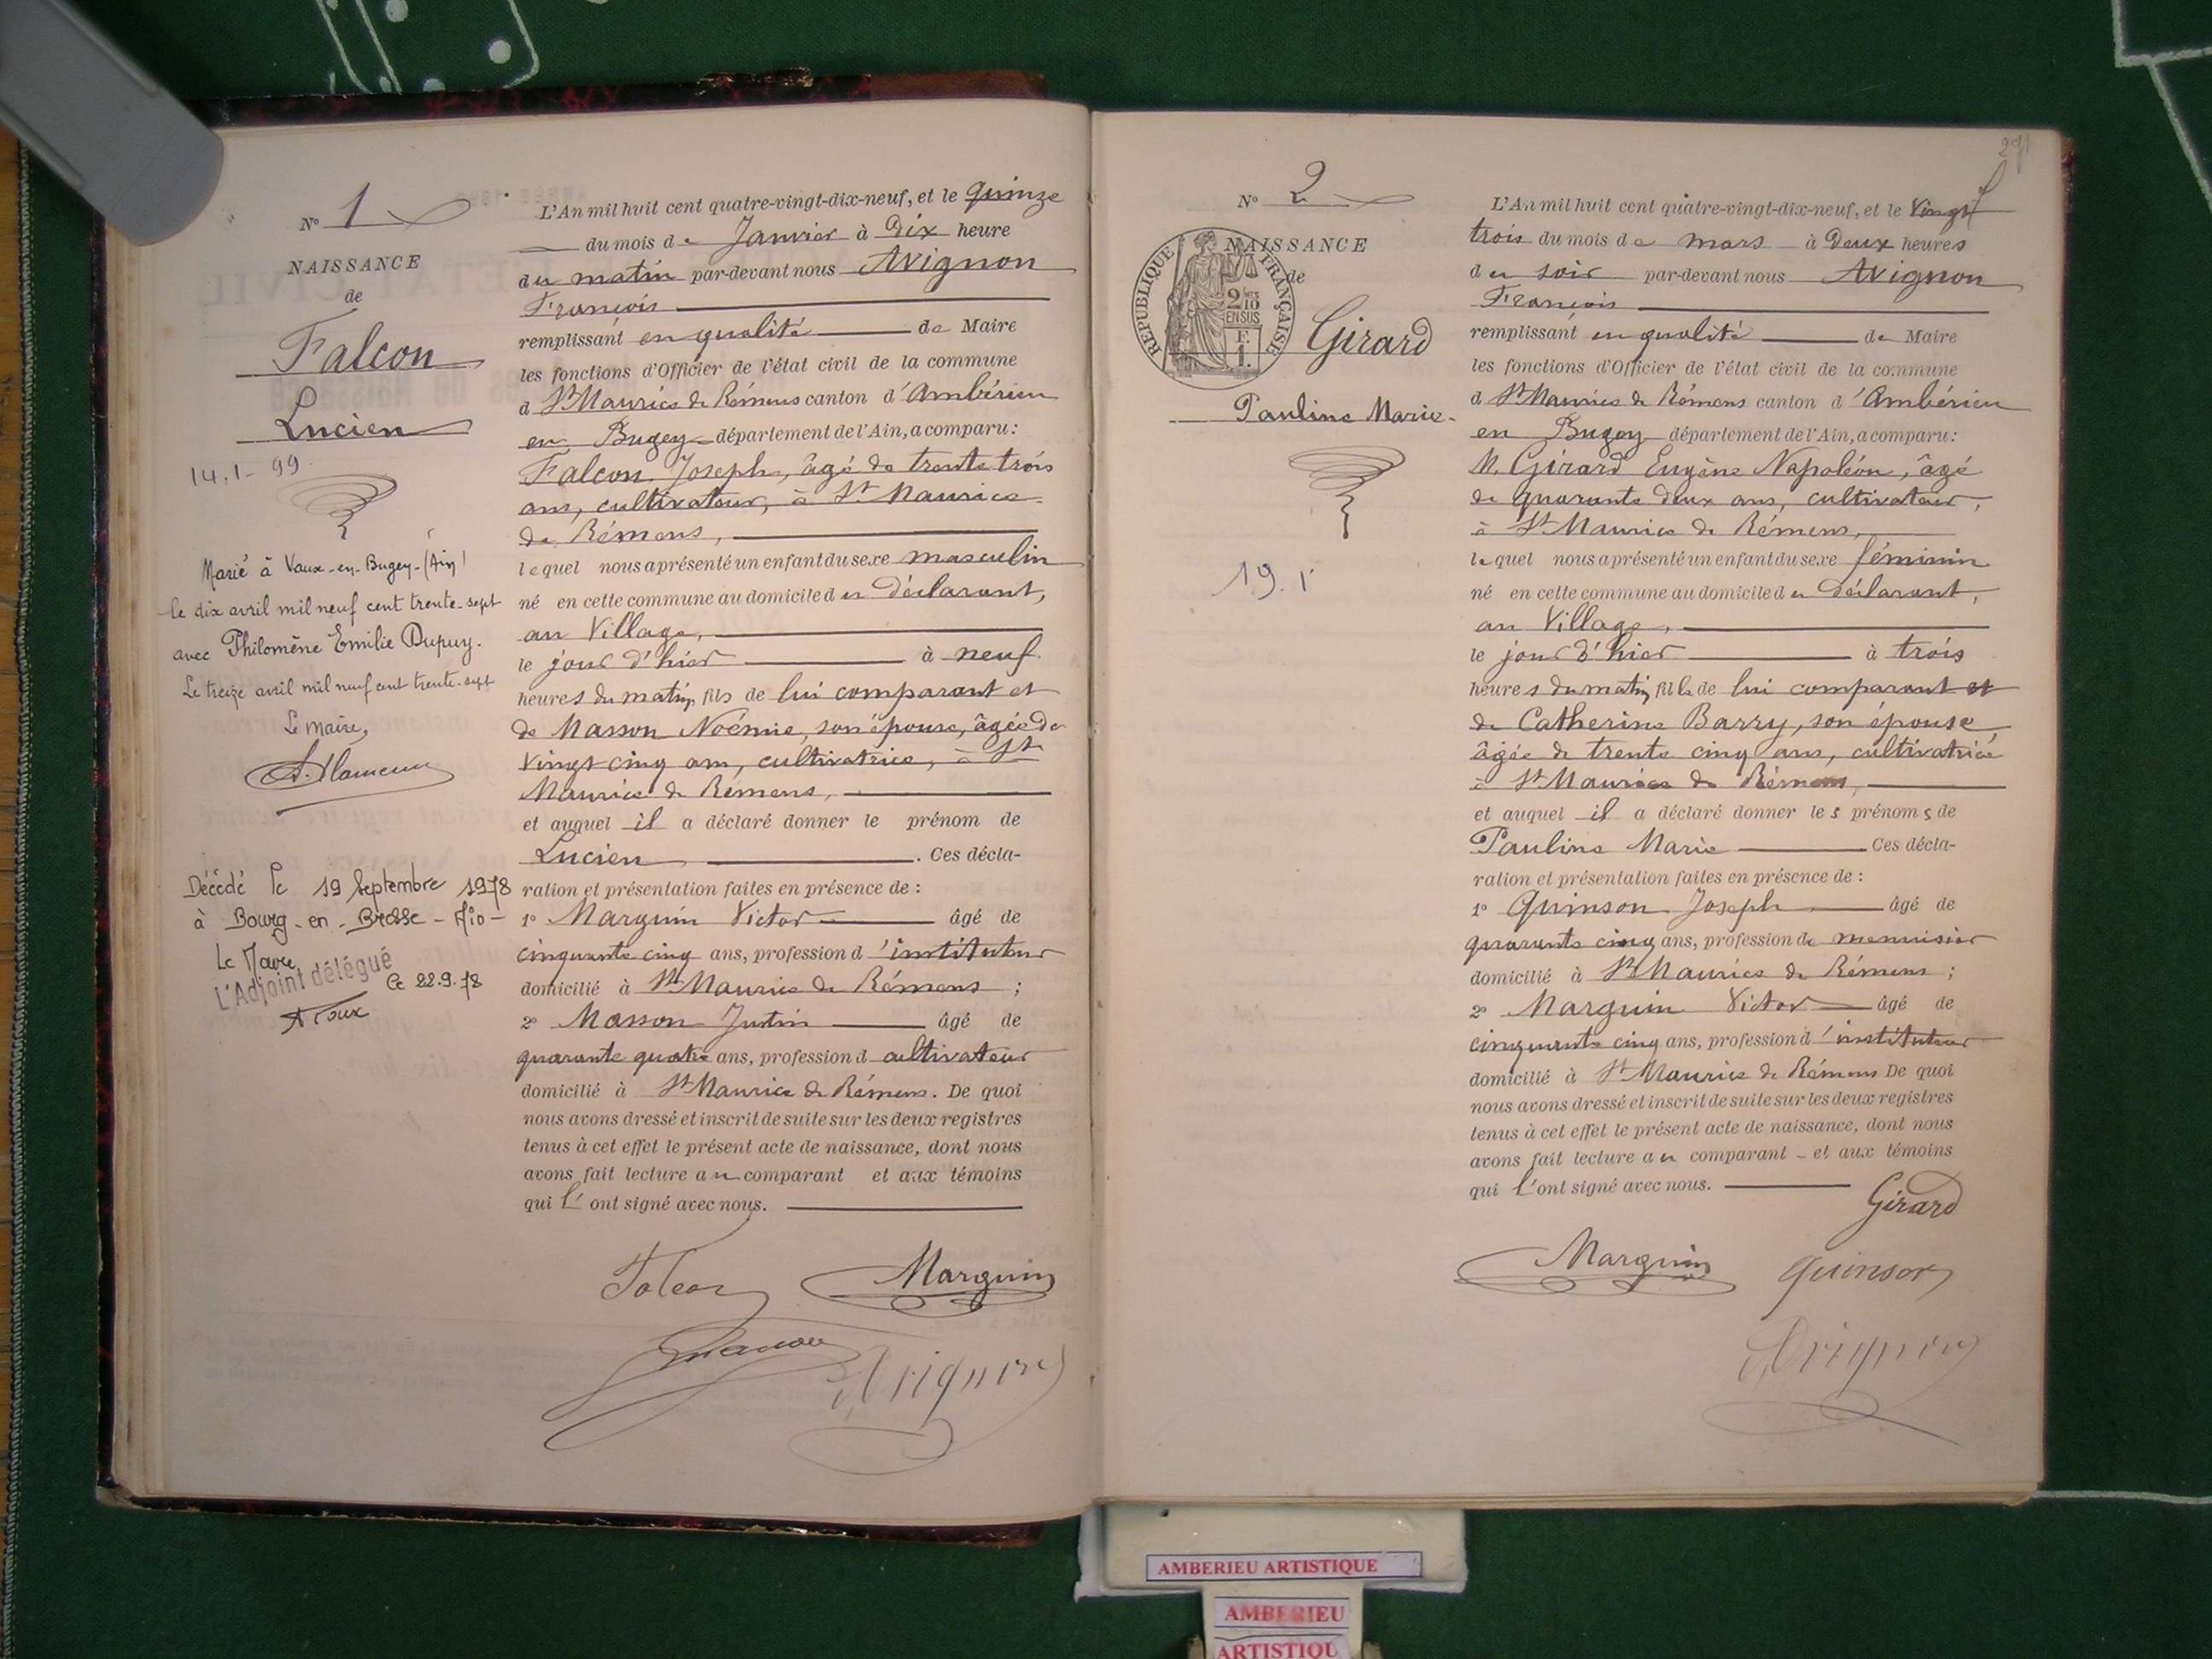 N° 1
NAISSANCE
de
Falcon
Lucien
14.1-99
Marié à Vaux-en-Bugey-(Ain)
le dix avril mil neuf cent trente-sept
avec Philomène Emilie Dupuy.
Le treize avril mil neuf cent trente-sept
Le maire,
Décédé le 19 Septembre 1978
à Bourg-en-Bresse-Ain-
Le Maire
L'Adjoint délégué
Le 22.9.78
L'An mil huit cent quatre-vingt-dix-neuf, et le quinze
du mois de Janvier à Dix heure
du matin par-devant nous Avignon
François
remplissant en qualité de Maire
les fonctions d'Officier de l'état civil de la commune
d St Maurice de Rémens canton d'Ambérieu
en Bugey département de l'Ain, a comparu:
Falcon Joseph, âgé de trente trois
ans, cultivateur, à St Maurice
de Rémens,
lequel nous a présenté un enfant du sexe masculin
né en cette commune au domicile du déclarant,
au Village,
le jour d'hier à neuf
heures du matin, fils de lui comparant et
de Masson Noémie, son épouse, âgée de
vingt cinq ans, cultivatrice, à St
Maurice de Rémens,
et auquel il a déclaré donner le prénom de
Lucien. Ces décla-
ration et présentation faites en présence de :
1° Marguin Victor âgé de
cinquante cinq ans, profession d'instituteur
domicilié à St Maurice de Rémens ;
2° Masson Justin âgé de
quarante quatre ans, profession d cultivateur
domicilié à St Maurice de Rémens. De quoi
nous avons dressé et inscrit de suite sur les deux registres
tenus à cet effet le présent acte de naissance, dont nous
avons fait lecture au comparant et aux témoins
qui l'ont signé avec nous.
Falcon Marguin
Masson Avignon
271
N° 2
NAISSANCE
de
RÉPUBLIQUE FRANÇAISE
2/10 EN SUS
F. 1.
Girard
Pauline Marie
L'An mil huit cent quatre-vingt-dix-neuf, et le Vingt
trois du mois de mars à Deux heures
du soir par-devant nous Avignon
François
remplissant en qualité de Maire
les fonctions d'Officier de l'état civil de la commune
d St Maurice de Rémens canton d'Ambérieu
en Bugey département de l'Ain, a comparu:
M. Girard Eugène Napoléon, âgé
de quarante deux ans, cultivateur,
à St Maurice de Rémens,
lequel nous a présenté un enfant du sexe féminin
né en cette commune au domicile du déclarant,
au Village,
le jour d'hier à trois
heures du matin, fille de lui comparant et
de Catherine Barry, son épouse
âgée de trente cinq ans, cultivatrice
à St Maurice de Rémens,
et auquel il a déclaré donner les prénoms de
Pauline Marie Ces décla-
ration et présentation faites en présence de :
1° Quinson Joseph âgé de
quarante cinq ans, profession de menuisier
domicilié à St Maurice de Rémens ;
2° Marguin Victor âgé de
cinquante cinq ans, profession d'instituteur
domicilié à St Maurice de Rémens De quoi
nous avons dressé et inscrit de suite sur les deux registres
tenus à cet effet le présent acte de naissance, dont nous
avons fait lecture au comparant et aux témoins
qui l'ont signé avec nous.
Girard
Marguin Quinson
Avignon
AMBERIEU ARTISTIQUE
AMBERIEU
ARTISTIQU